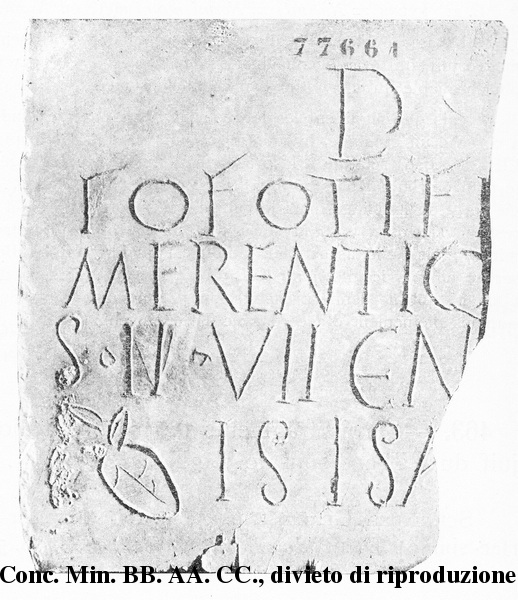 77661
D
FOFOTIF
MERENTIQ
S · N · VII EN
ISISA
Conc. Min. BB. AA. CC., divieto di riproduzione